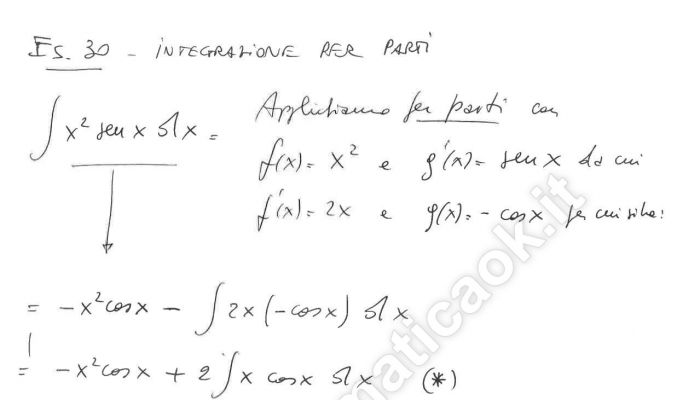 Es. 30 - INTEGRAZIONE PER PARTI
∫ x² sen x dx = Applichiamo per parti con
f(x) = x² e g'(x) = sen x da cui
f'(x) = 2x e g(x) = - cos x per cui si ha:
= -x² cos x - ∫ 2x (-cos x) dx
= -x² cos x + 2 ∫ x cos x dx (*)
maticaok.it